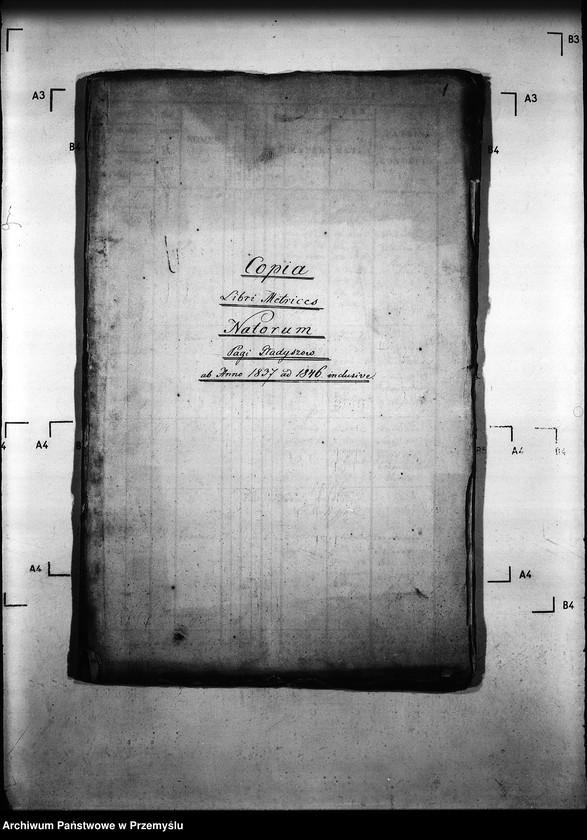 B3
A3
A3
B4
B4
1
Copia
Libri Metrices
Natorum
Pagi Hadyszow
ab Anno 1837 ad 1846 inclusive
A4
B
A4
B4
A4
A4
B4
Archiwum Państwowe w Przemyślu